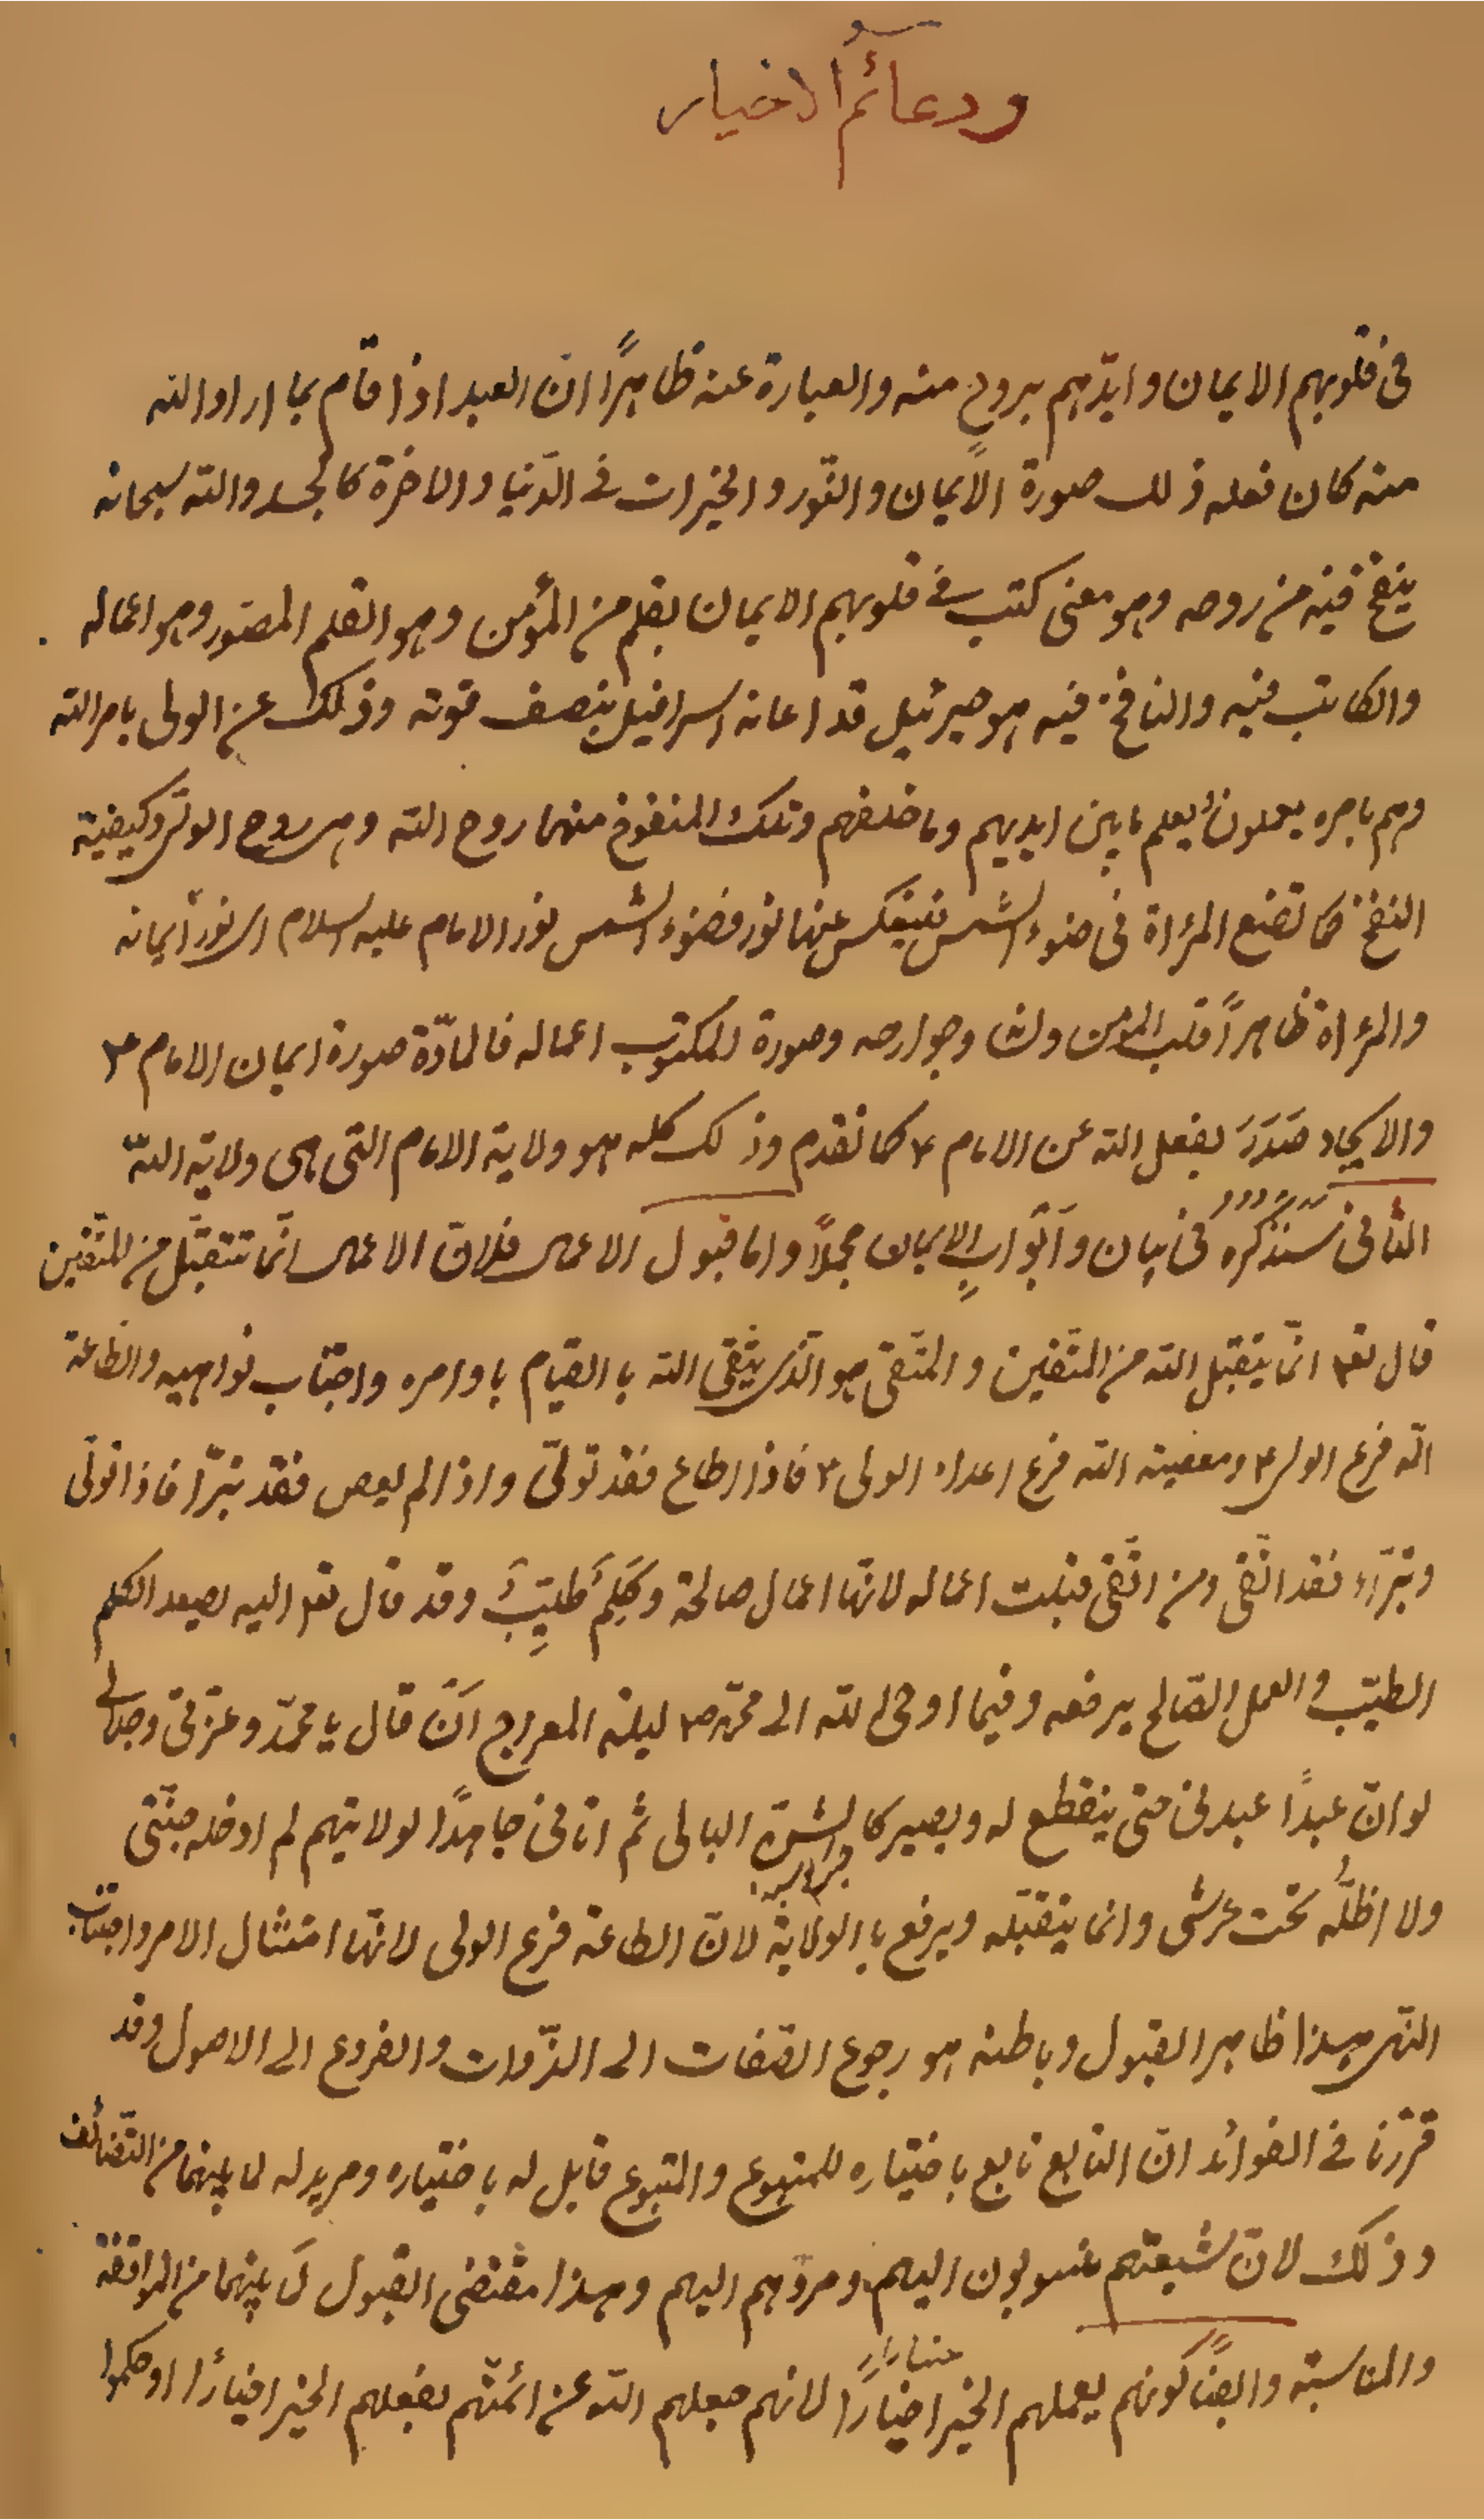 ودعائم الاخيار
فى قلوبهم الايمان وايّدهم بروح منه والعبارة عنه ظاهراً انّ العبد اذا قام بما اراد الله
منه كان فعله ذلك صورة الايمان والنّور والخيرات فے الدّنيا والاخرة كالجسد والله سبحانه
ينفخ فيه من روحه وهو معنى كتب فے قلوبهم الايمان بقلم من المؤمن وهو القلم المصوّر وهو اعماله
والكاتب فيه والنافخ فيه هو جبرئيل قد اعانه اسرافيل بنصف قوته وذلك عن الولى بامر الله
وهم بامره يعملون يعلم ما بين ايديهم وما خلفهم وتلك المنفوخ منهما روح الله وهى روح الولى وكيفية
النفخ كما تضع المرءاة فى ضوء الشمس فينعكس عنها نور فضوء الشمس نور الامام عليه السلام اى نور ايمانه
والمرءاة ظاهراً قلب المؤمن ولسا وجوارحه وصورة المكتوب اعماله فالمادّة صورة ايمان الامام ع
والايجاد صَدَرَ بفعل الله عن الامام ع كما تقدم وذلك كله هو ولاية الامام التى هى ولاية الله
الثانى سَنذكره فى بيان وَاَبْوَابِ الايمان مجملاً واما قبول الاعمال فلانّ الاعمال انّما تتقبّل من المتّقين
قال تعا انّما يتقبل الله من المتّقين والمتّقى هو الّذى يتّقى الله باالقيام باوامره واجتناب نواهيه والطاعة
الله فرع الولى ع ومعصيته الله فرع اعداء الولى ع فاذا اطاع فقد تولّى واذا لم يعص فقد تبرّأ فاذا تولّى
وتبرّاء فقد اتّقى ومن اتّقى قبلت اعماله لانّها اعمال صالحة وكَلِمٌ طيِّبٌ وقد قال تعا اليه يصعد الكلم
الطيّب والعمل الصّالح يرفعه وفيما اوحى الله الى محمّد ص ليلة المعراج اَنْ قال يا محمّد وعزتى وجلالے
لو انّ عبداً عبدنى حتى ينقطع له ويصير كالشن البالى ثم اتانى جاهداً لولايتهم لم ادخله جنّتى
ولا اظلّه تحت عرشى وانما يتقبّله ويرفع باالولاية لانّ الطاعة فرع الولى لانّها امتثال الامر واجتناب
النّهى هذا ظاهر القبول وباطنه هو رجوع الصّفات الى الذّوات والفروع الى الاصول وقد
قرّرنا فے الفوائد انّ التابع تابع باختياره للمتبوع والمتبوع قابل له باختياره ومريد له لما بينهما من التّضائف
وذلك لانّ شيعتهم منسوبون اليهم ومردّهم اليهم وهذا مقتضى القبول لما بينهما من الموافقة
والمناسبة وايضاً كونهم يعملهم الخير اخياراً لانهم جعلهم الله عن ائمتّهم بفعلهم الخير اخياراً او حكموا